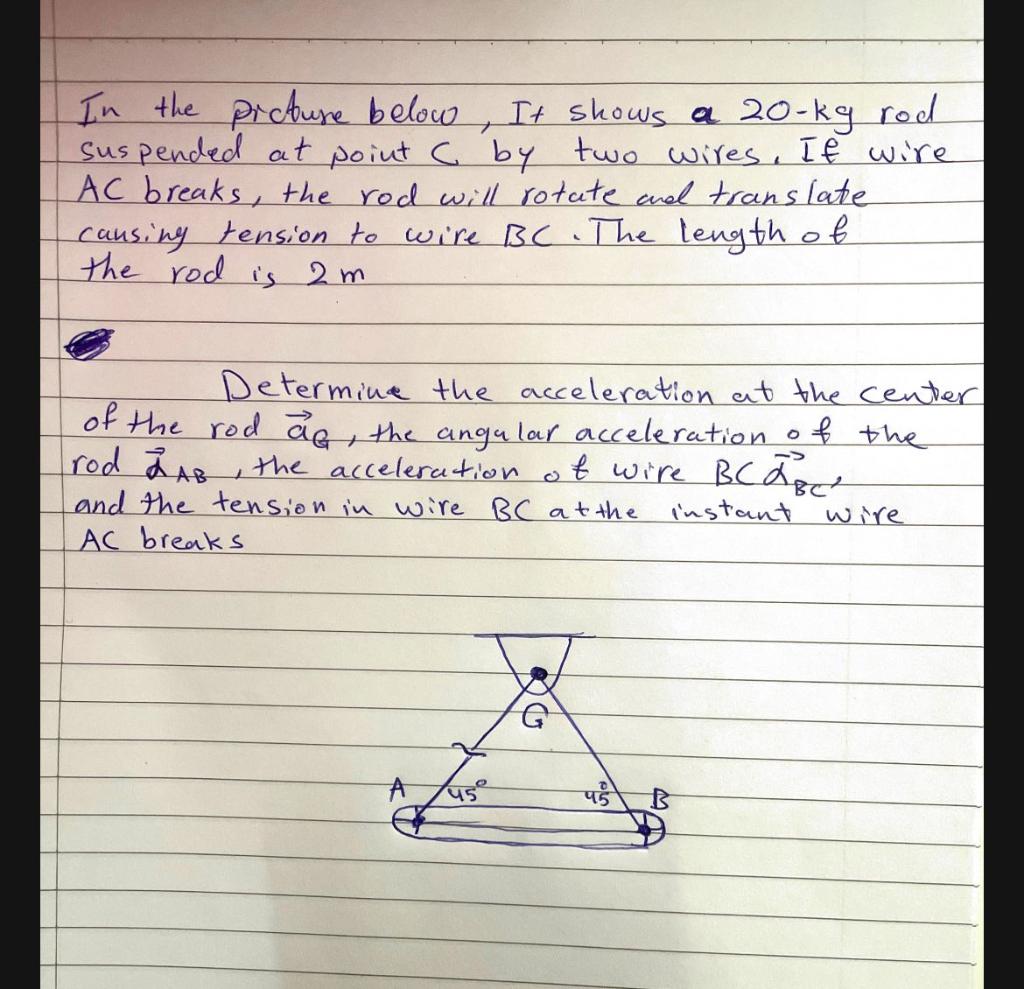 In the picture below, It shows a 20-kg rod
suspended at point C by two wires. If wire
AC breaks, the rod will rotate and translate
causing tension to wire BC. The length of
the rod is 2 m
Determine the acceleration at the center
of the rod a⃗G, the angular acceleration of the
rod α⃗AB, the acceleration of wire BC α⃗BC,
and the tension in wire BC at the instant wire
AC breaks
G
A 45° 45° B